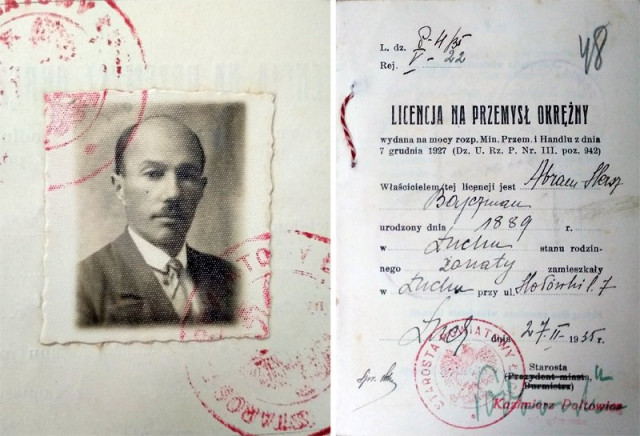 L. dz. 4/35
Rej. V - 22
48
LICENCJA NA PRZEMYSŁ OKRĘŻNY
wydana na mocy rozp. Min. Przem. i Handlu z dnia
7 grudnia 1927 (Dz. U. Rz. P. Nr. III. poz. 942)
Właścicielem tej licencji jest Abram
urodzony dnia 1889 r.
w Łucku stanu rodzin-
nego żonaty zamieszkały
w Łucku przy ul. 7
dnia 27-II-1935 r.
STAROSTA POWIATOWY
Starosta
(Prezydent miasta,
Burmistrz)
Kazimierz